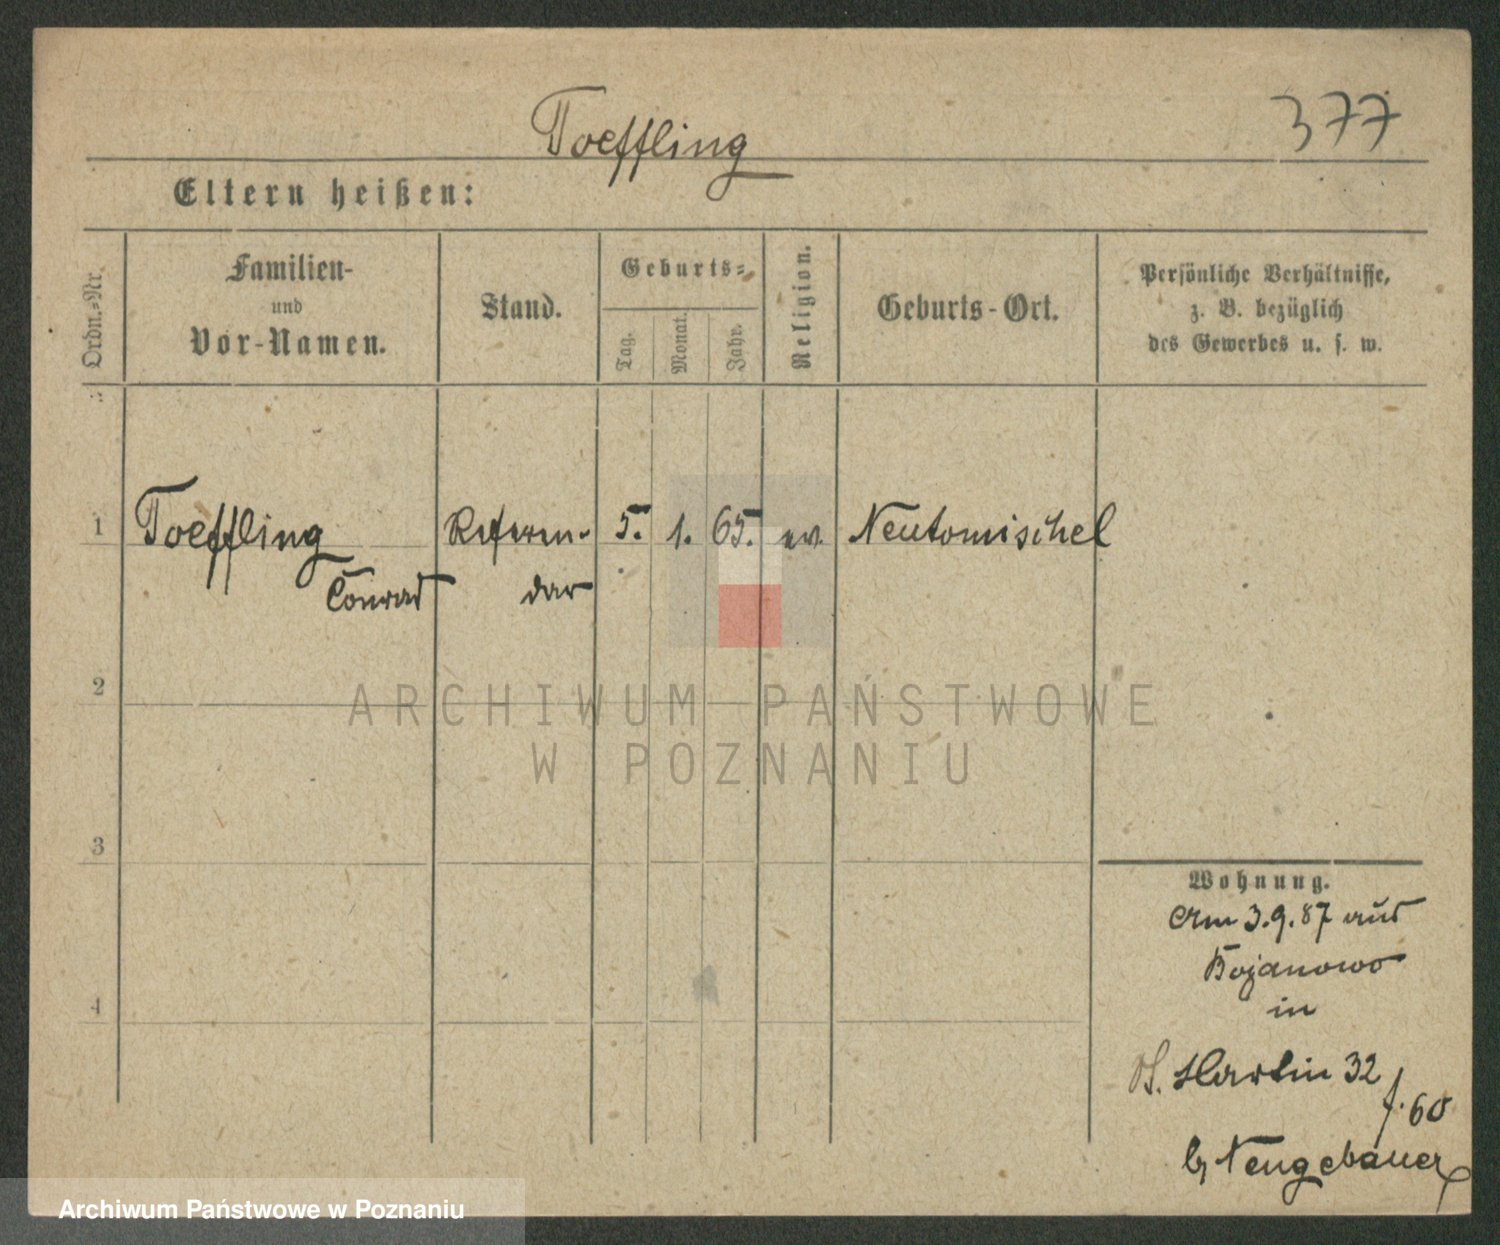 Toeffling
377
Eltern heißen:
Ordn.-Nr.
Familien-
und
Vor-Namen.
Stand.
Geburts-
Tag.
Monat.
Jahr.
Religion.
Geburts-Ort.
Persönliche Verhältnisse,
z. B. bezüglich
des Gewerbes u. s. w.
1 Toeffling Referen- 5. 1. 65. ev. Neutomischel
Conrad dar
2
ARCHIWUM PAŃSTWOWE
W POZNANIU
3
Wohnung.
Am 3.9.87 aus
Bojanowo
in
St. Martin 32
f. 60
b/ Neugebauer
4
Archiwum Państwowe w Poznaniu